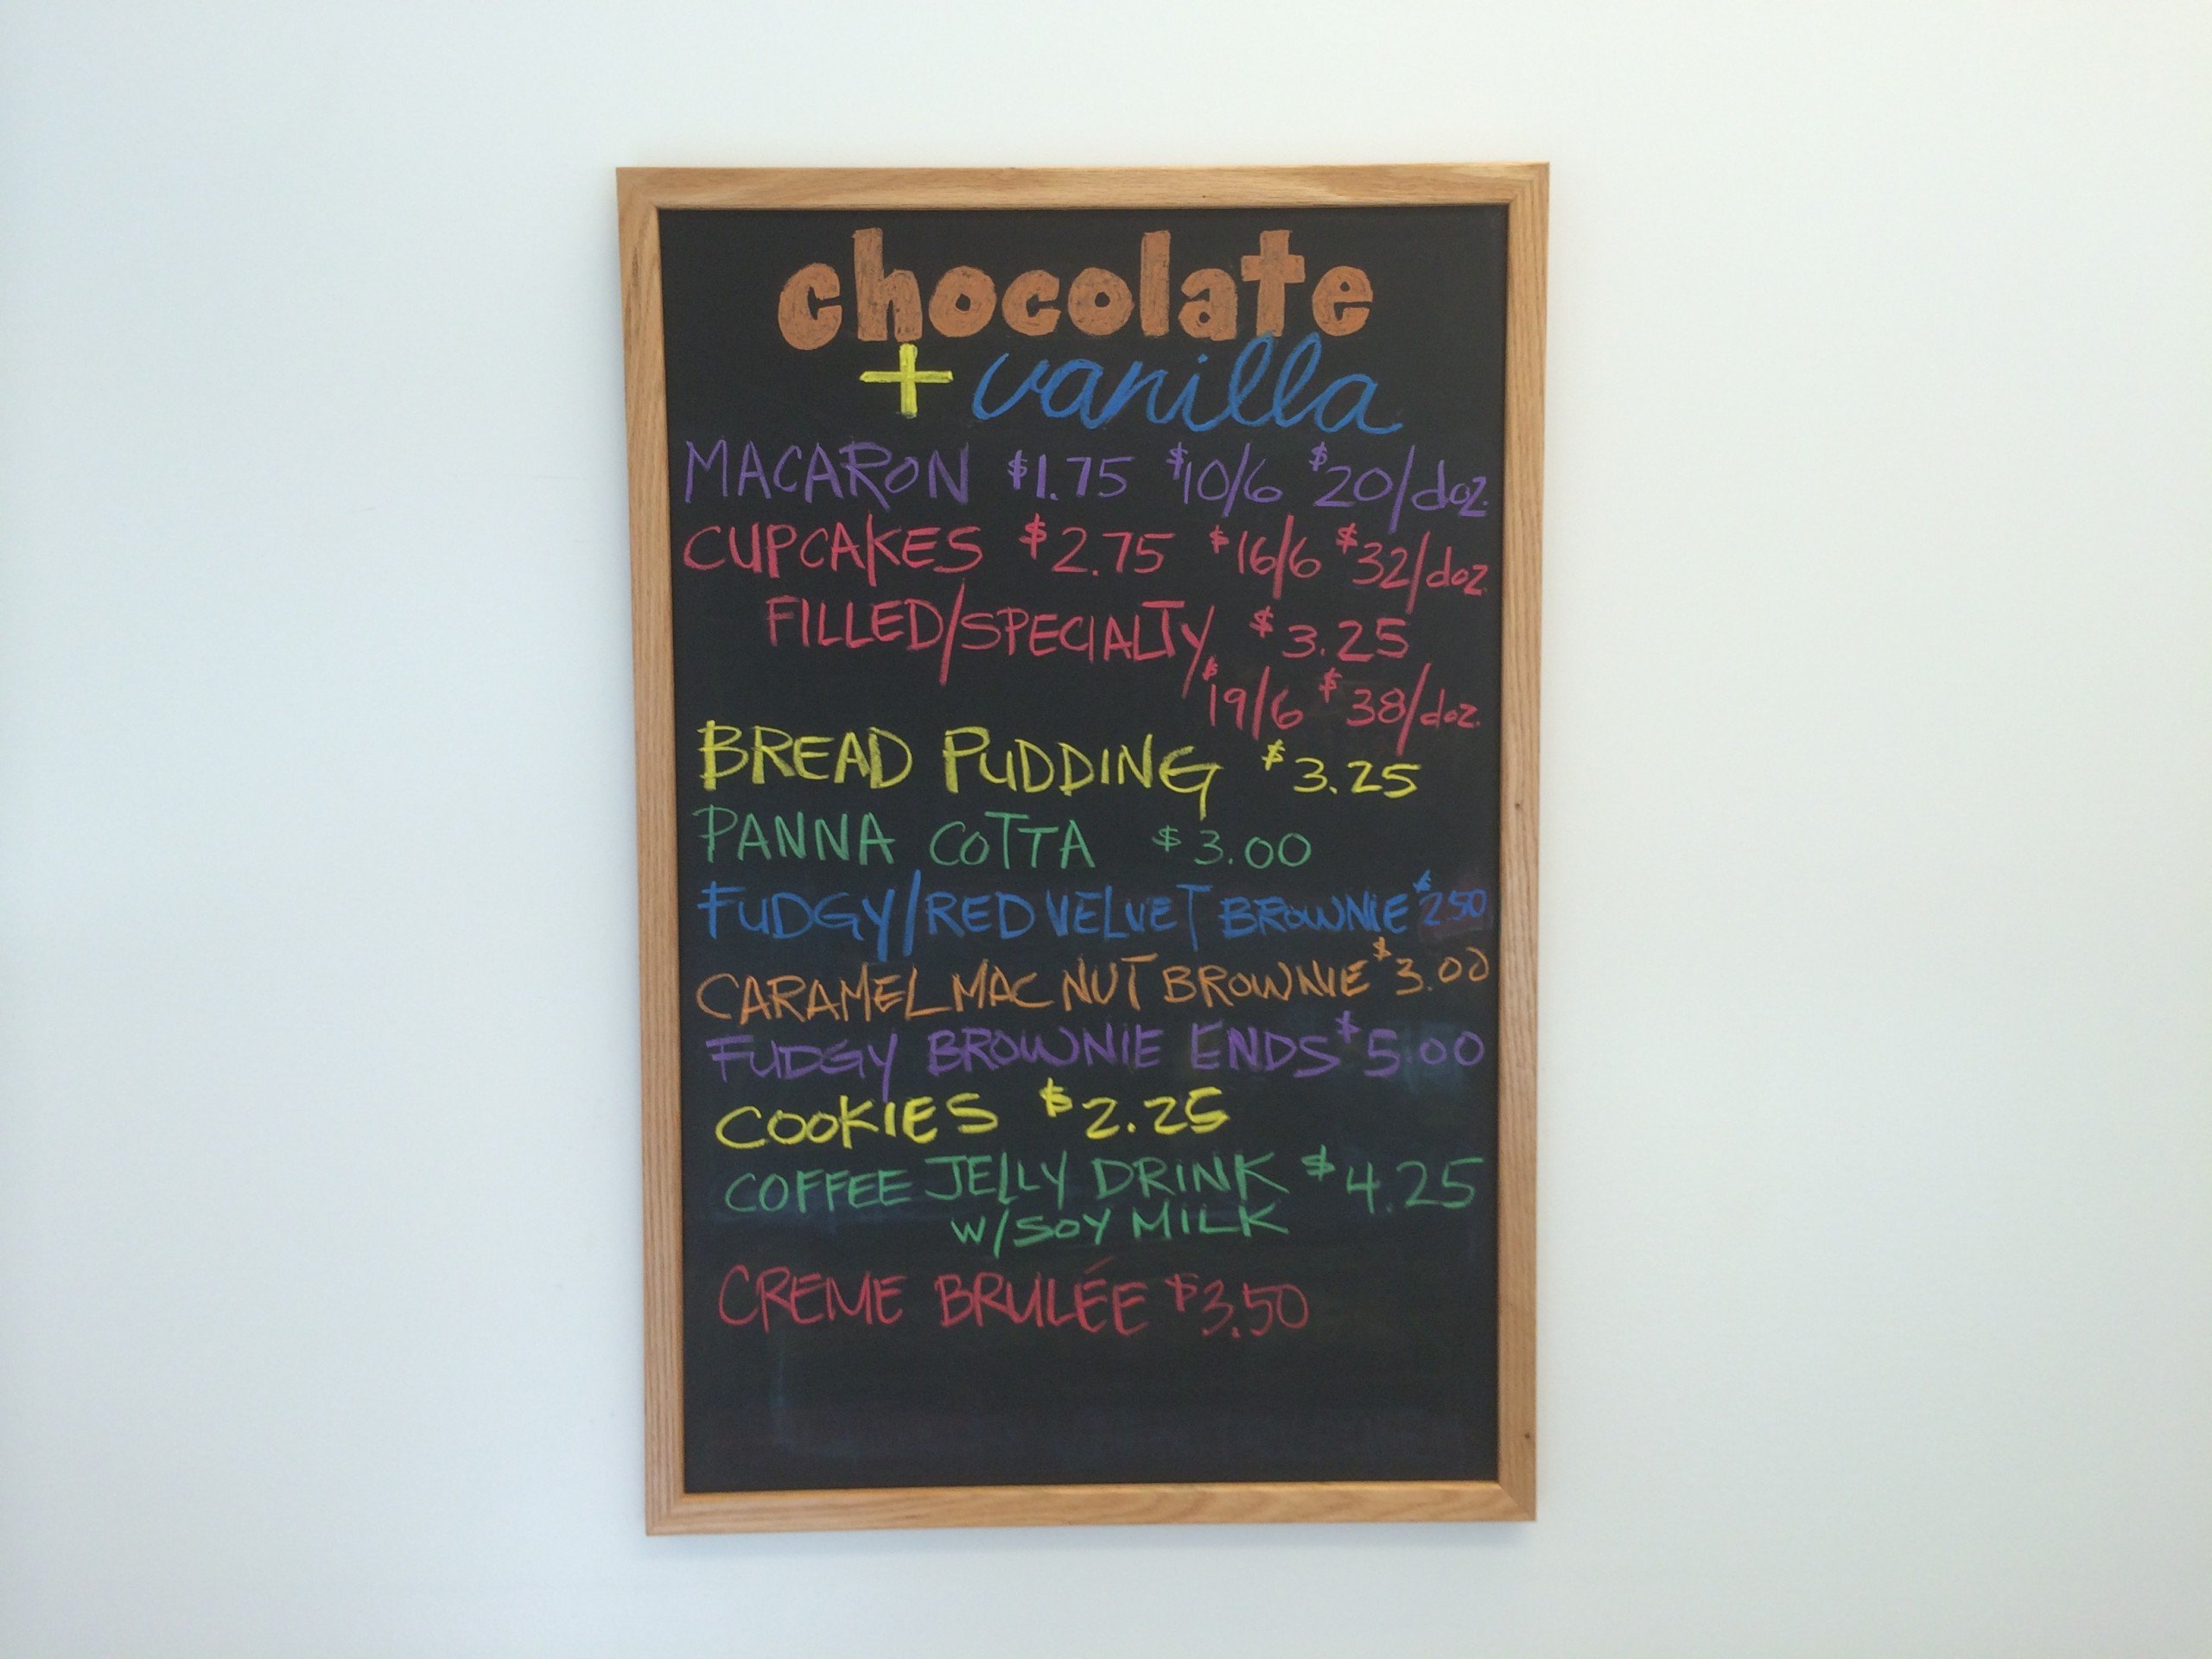 chocolate
+ vanilla
MACARON $1.75 $10/6 $20/doz.
CUPCAKES $2.75 $16/6 $32/doz.
FILLED/SPECIALTY $3.25
$19/6 $38/doz.
BREAD PUDDING $3.25
PANNA COTTA $3.00
FUDGY/RED VELVET BROWNIE $2.50
CARAMEL MAC NUT BROWNIE $3.00
FUDGY BROWNIE ENDS $5.00
COOKIES $2.25
COFFEE JELLY DRINK $4.25
W/SOY MILK
CREME BRULÉE $3.50